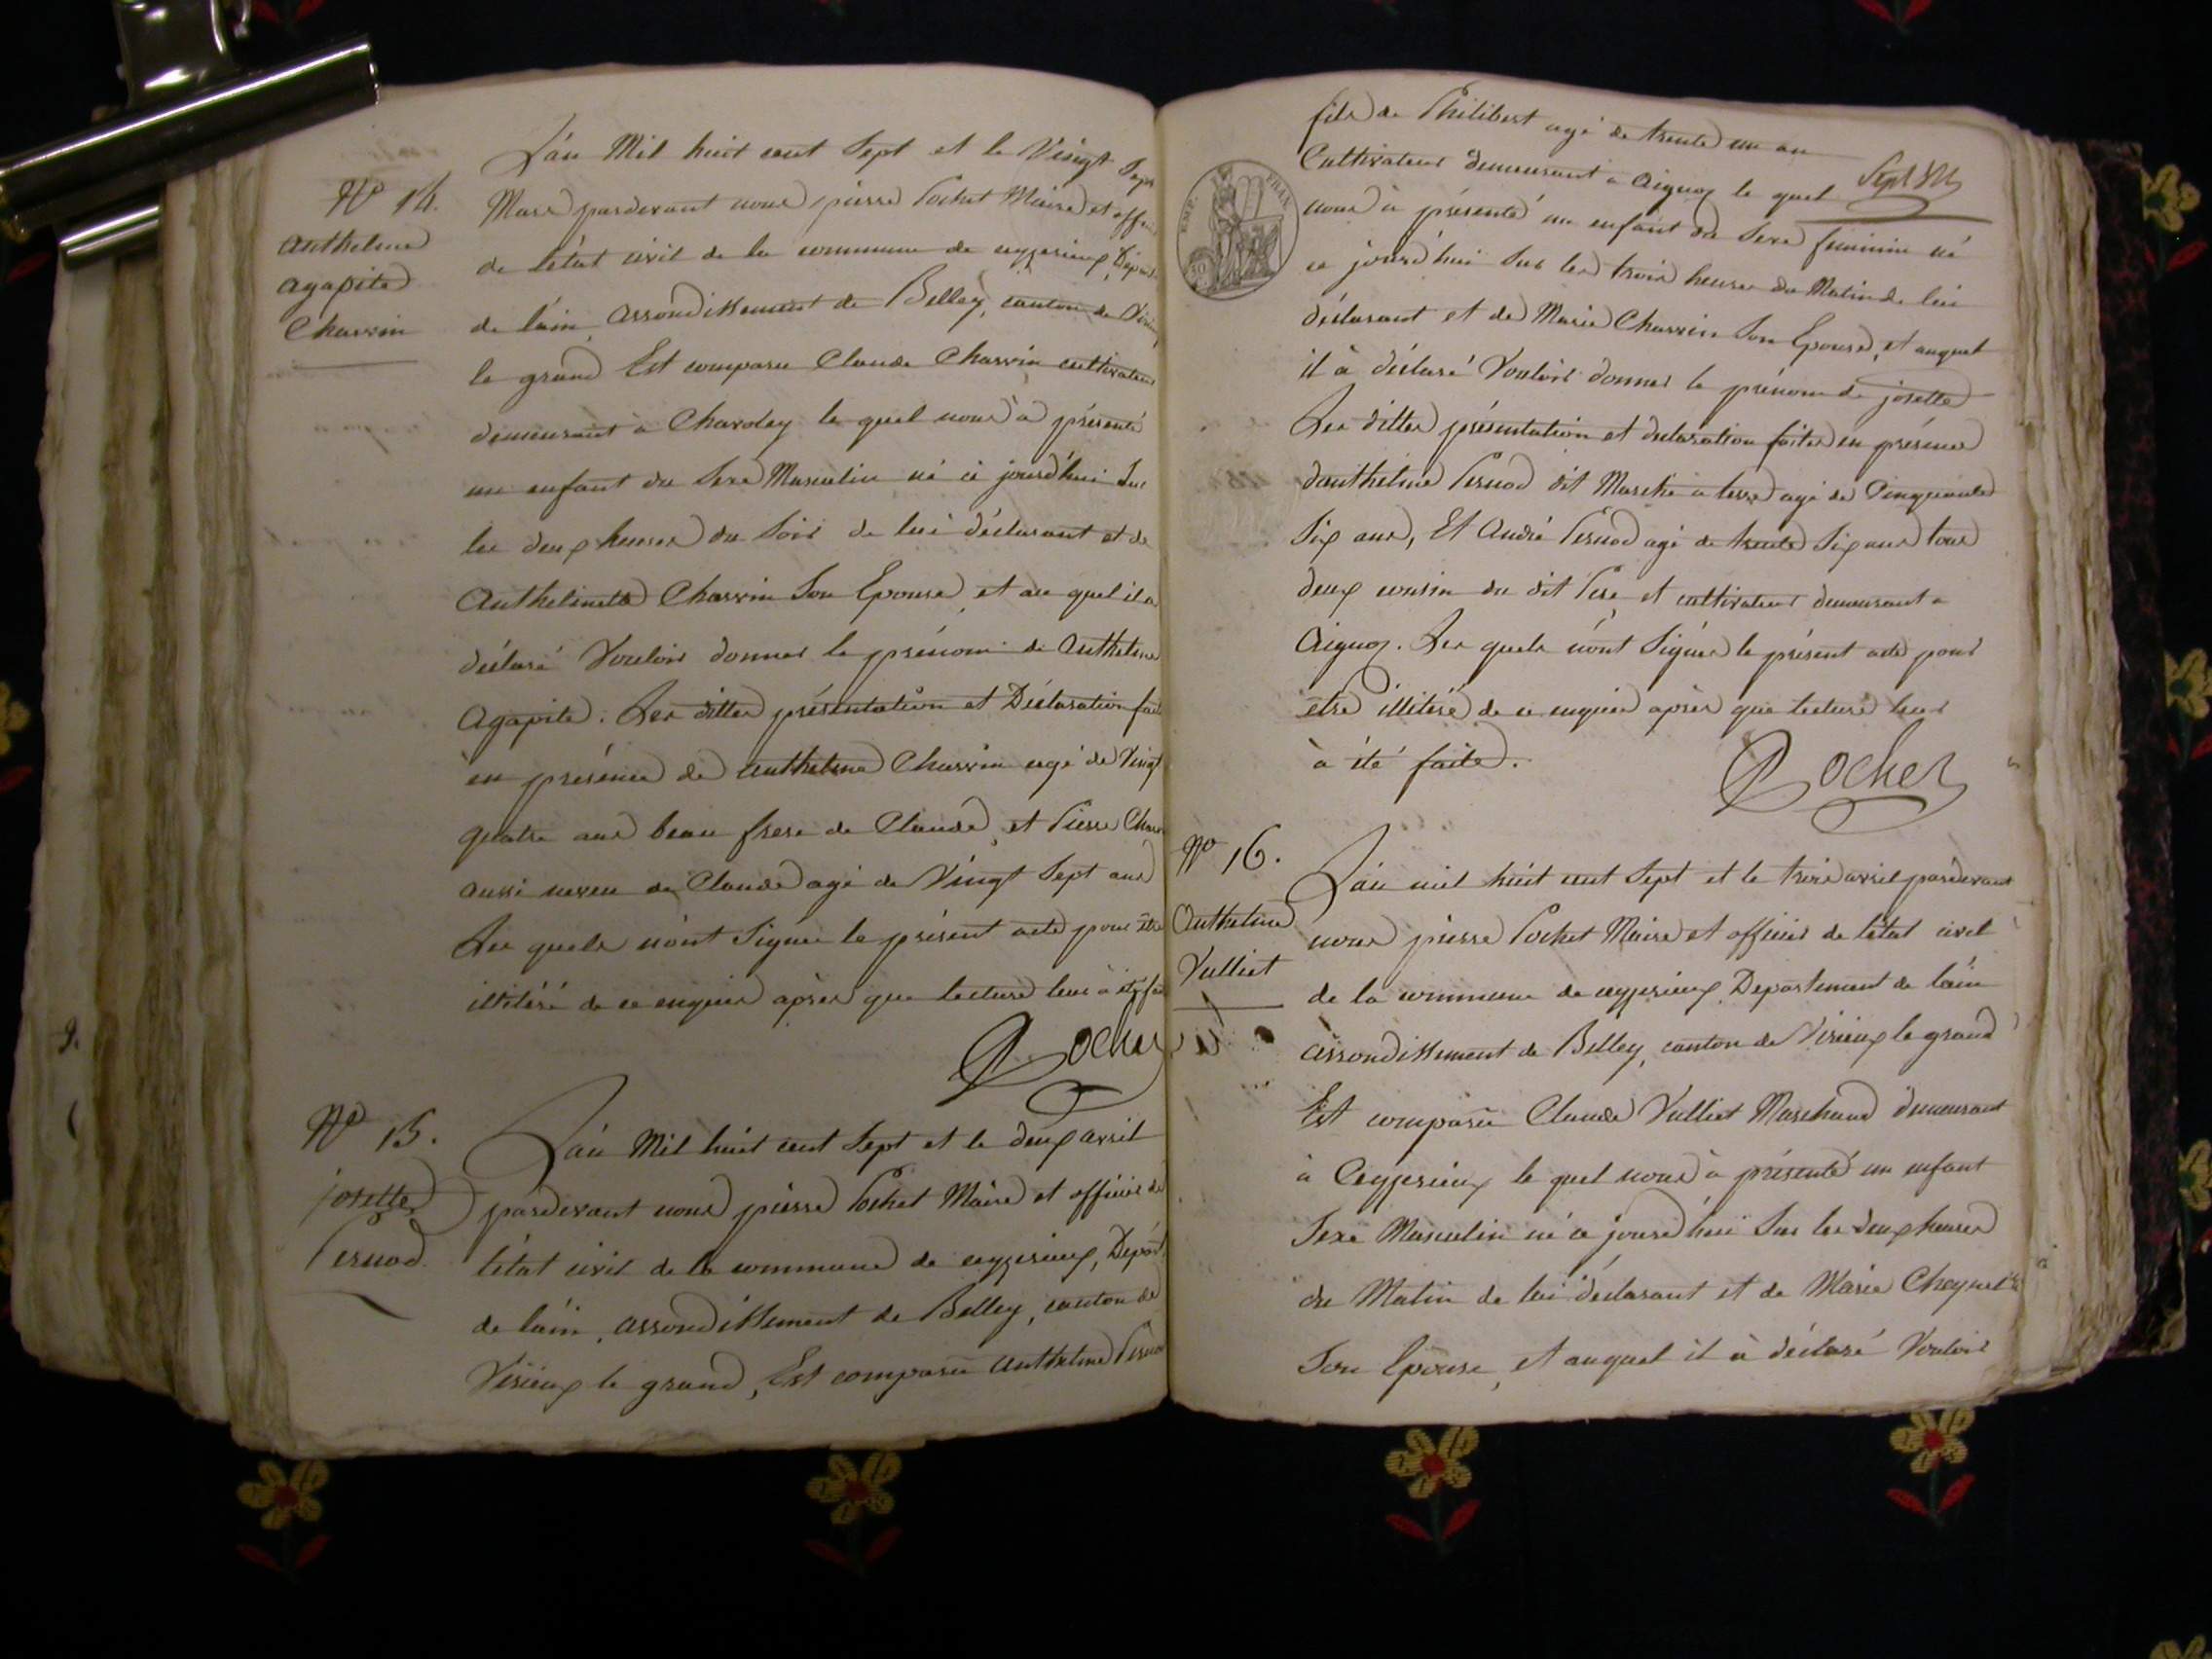 L'án Mil huit cent Sept et le Vingt Sept
Nº 14.
Mars pardevant nous pierre Pochet Maire et offi
anthelme
de l'état civil de la commune de ceyzerieux, Dépar
agapite
de l'ain, arrondissement de Belley, canton de Viri
Charvin
le grand Est comparu Claude Charvin cultivateur
demeurant à Charoley le quel nous à présenté
un enfant du Sexe Masculin né ce jourd'hui Sur
les deux heures du Soir de lui déclarant et de
Anthelmette Charvin Son Epouse, et au quel il a
déclaré Vouloir donner le prénom de Anthelme
Agapite. Les dittes présentation et Déclaration fait
en présence de Anthelme Charvin agé de Vingt
quatre ans beau frere de Claude, et Pierre Char
aussi neveu de Claude agé de Vingt Sept ans
Les quels n'ont Signer le présent acte pour être
illitéré de ce enquier après que lecture leur à été fai
Pochet
Nº 15.
josette
Pernod
L'án Mil huit cent Sept et le deux avril
pardevant nous pierre Pochet Maire et officier de
l'état civil de la commune de ceyzerieux, Dépar
de l'ain, arrondissement de Belley, canton de
Virieux le grand, Est comparu anthelme Pernod
fils de Philibert agé de trente un an
Cultivateur demeurant à Aignoz le quel
Sept
nous à présenté un enfant du Sexe feminin né
EMP. FRAN.
ce jourd'hui Sur les trois heures du Matin de lui
déclarant et de Marie Charvin Son Epouse, et auquel
il à déclaré Vouloir donner le prénom de josette
Les dittes présentation et declaration faites en présence
d'anthelme Pernod dit Marche à terre agé de Cinquante
Six ans, Et André Pernod agé de trente Six ans tous
deux cousin du dit Pere, et cultivateur demeurant à
Aignoz. Les quels n'ont Signer le présent acte pour
etre illitéré de ce enquier après que lecture leur
à été faite.
Pochet
Nº 16.
Anthelme
Vulliet
L'án mil huit cent Sept et le trois avril pardevant
nous pierre Pochet Maire et officier de l'état civil
de la commune de ceyzerieux Departement de l'ain
arrondissement de Belley, canton de Virieux le grand
Est comparu Claude Vulliet Marchand demeurant
à Ceyzerieux le quel nous à présenté un enfant
Sexe Masculin né ce jourd'hui Sur les deux heures
du Matin de lui déclarant et de Marie
Son Epouse, et auquel il à déclaré Vouloir